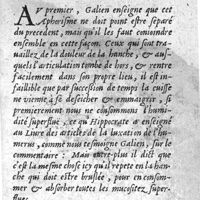 AV premier, Galien enseigne que cest
Aphorisme ne doit point estre separé
du precedent, mais qu'il les faut conioindre
ensemble en cette façon. Ceux qui sont tra-
uaillez de la douleur de la hanche, & aus-
quels l'articulation tombe de hors, & rentre
facilement dans son propre lieu, il est in-
faillible que par succession de temps la cuisse
ne vienne à se desseicher & emmaigrir, si
premierement nous ne consommons l'humi-
dité superfluë, ce qu'Hippocrate a enseigné
au Liure des articles de la luxation de l'hu-
merus, comme nous tesmoigne Galien, sur le
commentaire : Mais entre-plus il dit que
c'est la mesme chose icy qu'il repete en la han-
che qui doit estre bruslée, pour en consu-
mer & absorber toutes les mucositez super-
fluës